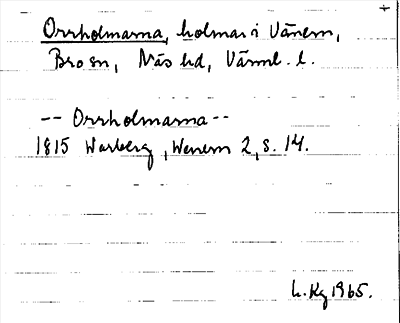 Orrholmarna, holmar i Vänern,
Bro sn, Näs hd, Värml. l.
-- Orrholmarna --
1815 Warberg, Wenern 2, s. 14.
L. Kg 1965.